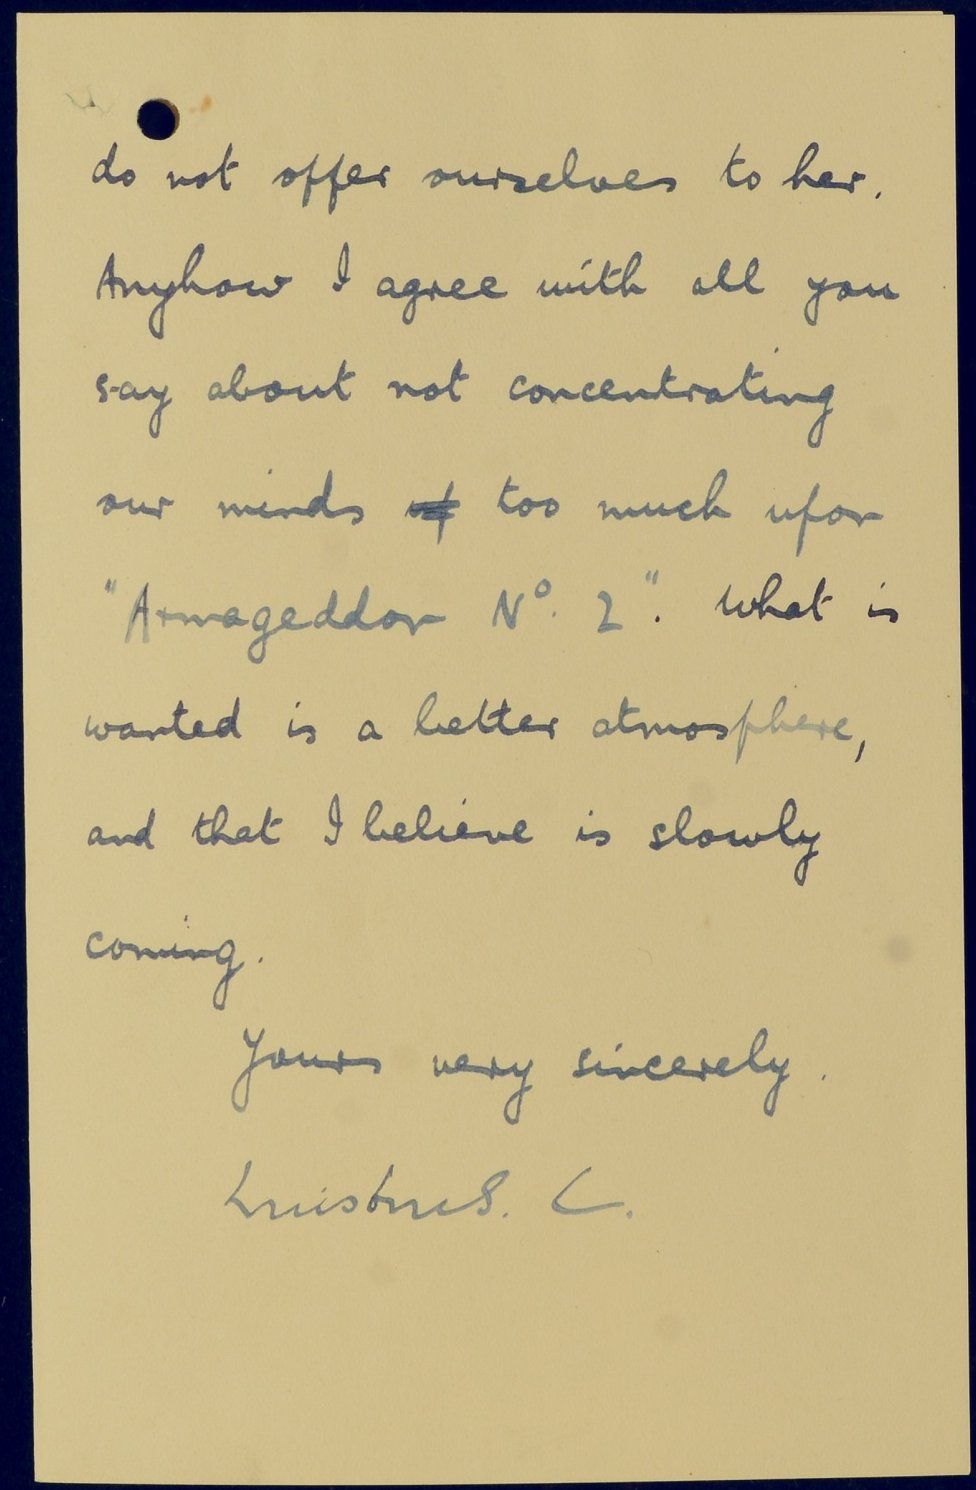 do not offer ourselves to her.
Anyhow I agree with all you
say about not concentrating
our minds too much upon
"Armageddon Nº. 2". What is
wanted is a better atmosphere,
and that I believe is slowly
coming.
Yours very sincerely.
S. C.